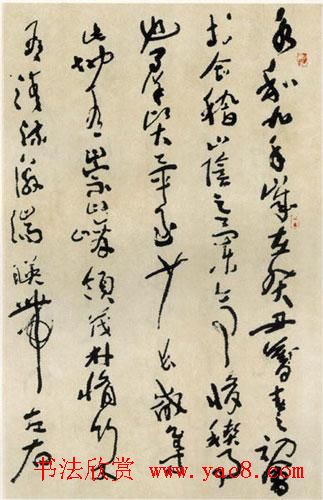 永和九年歲在癸丑暮春之初會
於會稽山陰之蘭亭脩禊事
也羣賢畢至少長咸集
此地有崇山峻領茂林脩竹又
有清流激湍暎帶左右
书法欣赏 www.yac8.com